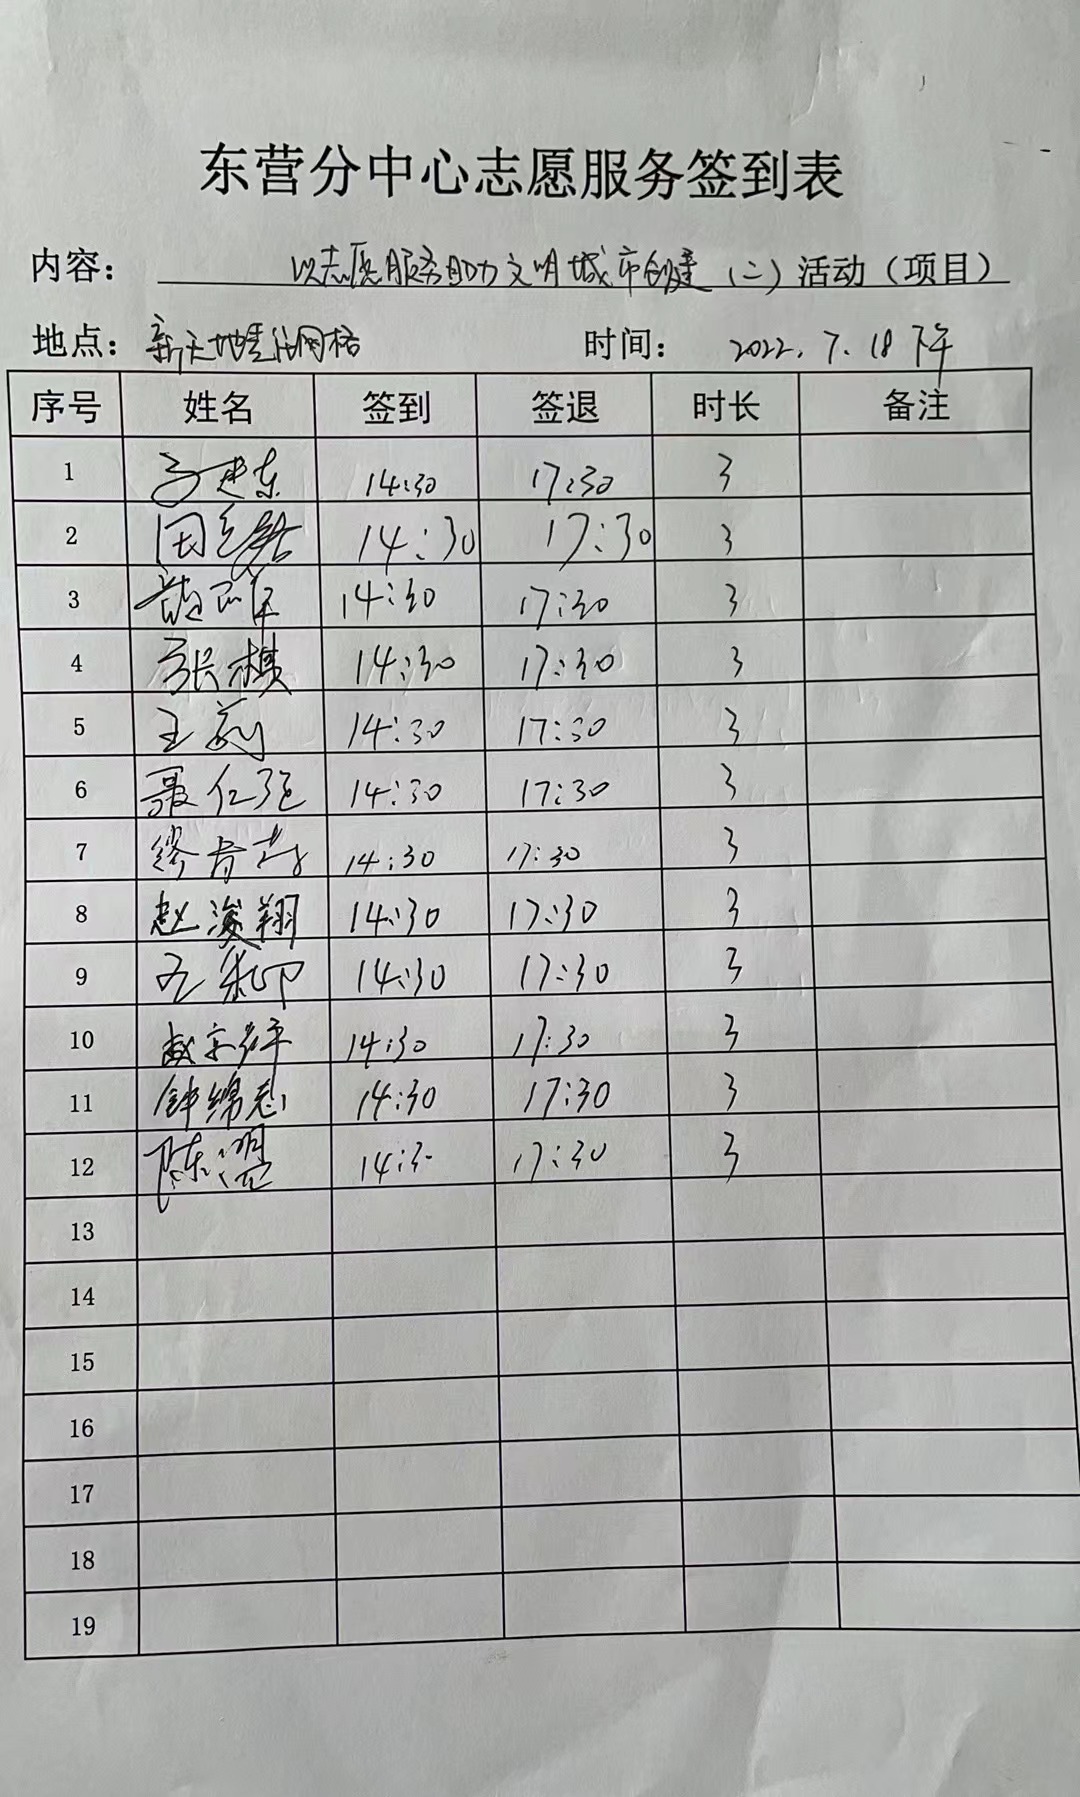 东营分中心志愿服务签到表
内容： 以志愿服务助力文明城市创建（二）活动（项目）
地点：新天地 网格 时间： 2022.7.18下午
序号 姓名 签到 签退 时长 备注
1 14:30 17:30 3
2 14:30 17:30 3
3 14:30 17:30 3
4 张棋 14:30 17:30 3
5 王莉 14:30 17:30 3
6 聂仁强 14:30 17:30 3
7 14:30 17:30 3
8 赵浚翔 14:30 17:30 3
9 14:30 17:30 3
10 14:30 17:30 3
11 钟绵志 14:30 17:30 3
12 陈 14:30 17:30 3
13
14
15
16
17
18
19